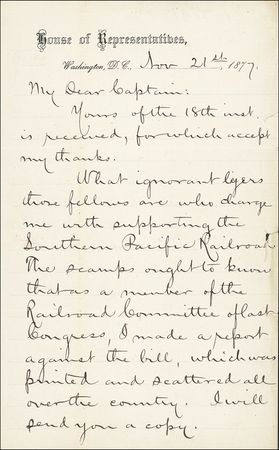 House of Representatives,
Washington, D.C., Nov 21st, 1877.
My Dear Captain:
Yours of the 18th inst.
is received, for which accept
my thanks.
What ignorant lyers
those fellows are who charge
me with supporting the
Southern Pacific Railroad
The scamps ought to know
that as a member of the
Railroad Committee of last
Congress, I made a report
against the bill, which was
printed and scattered all
over the country. I will
send you a copy.